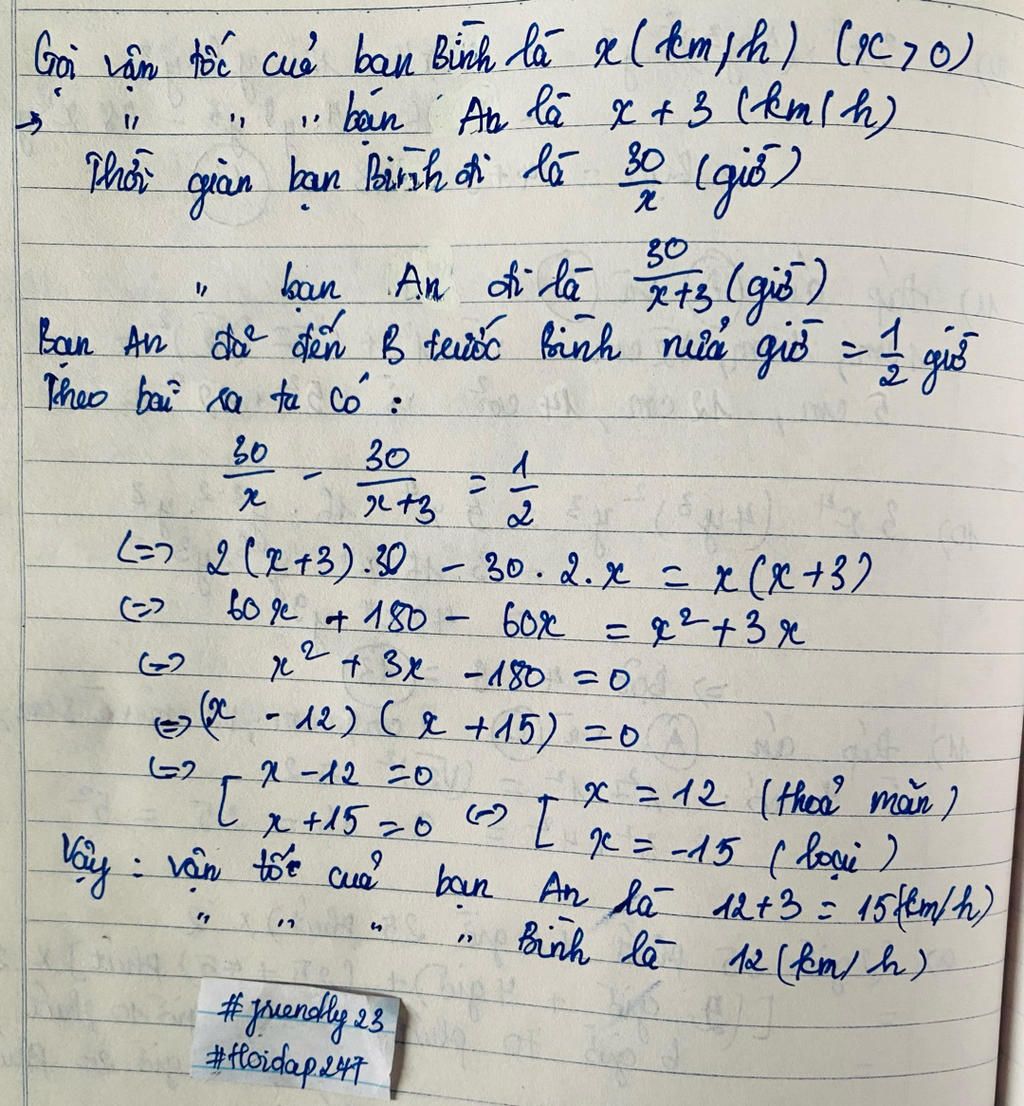 Gọi vận tốc của bạn Bình là x (km/h) (x > 0)
→ " " " bạn An là x + 3 (km/h)
Thời gian bạn Bình đi là 30/x (giờ)
" bạn An đi là 30/(x+3) (giờ)
Bạn An đã đến B trước Bình nửa giờ = 1/2 giờ
Theo bài ra ta có :
30/x - 30/(x+3) = 1/2
<=> 2(x+3).30 - 30.2.x = x(x+3)
<=> 60x + 180 - 60x = x² + 3x
<=> x² + 3x - 180 = 0
<=> (x - 12)(x + 15) = 0
<=> [ x - 12 = 0 <=> [ x = 12 (thoả mãn)
x + 15 = 0 x = -15 (loại)
Vậy : vận tốc của bạn An là 12+3 = 15(km/h)
" " " " Bình là 12 (km/h)
#friendly23
#Hoidap247